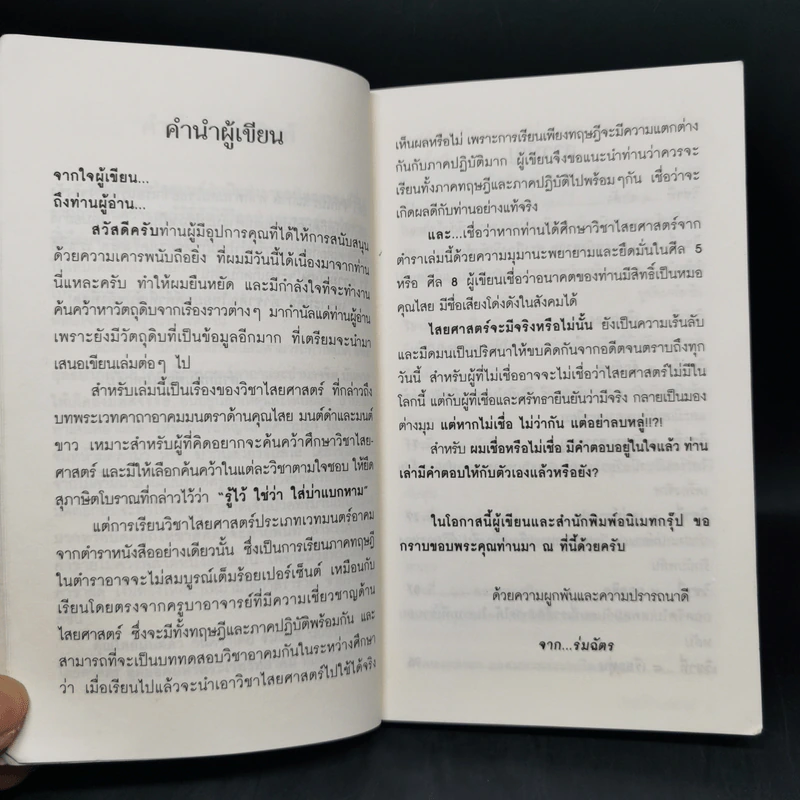 คำนำผู้เขียน
จากใจผู้เขียน...
ถึงท่านผู้อ่าน...
สวัสดีครับท่านผู้มีอุปการคุณที่ได้ให้การสนับสนุน
ด้วยความเคารพนับถือยิ่ง ที่ผมมีวันนี้ได้เนื่องมาจากท่าน
นี่แหละครับ ทำให้ผมยืนหยัด และมีกำลังใจที่จะทำงาน
ค้นคว้าหาวัตถุดิบจากเรื่องราวต่างๆ มากำนัลแด่ท่านผู้อ่าน
เพราะยังมีวัตถุดิบที่เป็นข้อมูลอีกมาก ที่เตรียมจะนำมา
เสนอเขียนเล่มต่อๆ ไป
สำหรับเล่มนี้เป็นเรื่องของวิชาไสยศาสตร์ ที่กล่าวถึง
บทพระเวทคาถาอาคมมนตราด้านคุณไสย มนต์ดำและมนต์
ขาว เหมาะสำหรับผู้ที่คิดอยากจะค้นคว้าศึกษาวิชาไสย-
ศาสตร์ และมีให้เลือกค้นคว้าในแต่ละวิชาตามใจชอบ ให้ยึด
สุภาษิตโบราณที่กล่าวไว้ว่า "รู้ไว้ ใช่ว่า ใส่บ่าแบกหาม"
แต่การเรียนวิชาไสยศาสตร์ประเภทเวทมนต์อาคม
จากตำราหนังสืออย่างเดียวนั้น ซึ่งเป็นการเรียนภาคทฤษฎี
ในตำราอาจจะไม่สมบูรณ์เต็มร้อยเปอร์เซ็นต์ เหมือนกับ
เรียนโดยตรงจากครูบาอาจารย์ที่มีความเชี่ยวชาญด้าน
ไสยศาสตร์ ซึ่งจะมีทั้งทฤษฎีและภาคปฏิบัติพร้อมกัน และ
สามารถที่จะเป็นบททดสอบวิชาอาคมกันในระหว่างศึกษา
ว่า เมื่อเรียนไปแล้วจะนำเอาวิชาไสยศาสตร์ไปใช้ได้จริง
เห็นผลหรือไม่ เพราะการเรียนเพียงทฤษฎีจะมีความแตกต่าง
กันกับภาคปฏิบัติมาก ผู้เขียนจึงขอแนะนำท่านว่าควรจะ
เรียนทั้งภาคทฤษฎีและภาคปฏิบัติไปพร้อมๆกัน เชื่อว่าจะ
เกิดผลดีกับท่านอย่างแท้จริง
และ...เชื่อว่าหากท่านได้ศึกษาวิชาไสยศาสตร์จาก
ตำราเล่มนี้ด้วยความมุมานะพยายามและยึดมั่นในศีล 5
หรือ ศีล 8 ผู้เขียนเชื่อว่าอนาคตของท่านมีสิทธิ์เป็นหมอ
คุณไสย มีชื่อเสียงโด่งดังในสังคมได้
ไสยศาสตร์จะมีจริงหรือไม่นั้น ยังเป็นความเร้นลับ
และมืดมนเป็นปริศนาให้ขบคิดกันจากอดีตจนตราบถึงทุก
วันนี้ สำหรับผู้ที่ไม่เชื่ออาจจะไม่เชื่อว่าไสยศาสตร์ไม่มีใน
โลกนี้ แต่กับผู้ที่เชื่อและศรัทธายืนยันว่ามีจริง กลายเป็นมอง
ต่างมุม แต่หากไม่เชื่อ ไม่ว่ากัน แต่อย่าลบหลู่!!?!
สำหรับ ผมเชื่อหรือไม่เชื่อ มีคำตอบอยู่ในใจแล้ว ท่าน
เล่ามีคำตอบให้กับตัวเองแล้วหรือยัง?
ในโอกาสนี้ผู้เขียนและสำนักพิมพ์อนิเมทกรุ๊ป ขอ
กราบขอบพระคุณท่านมา ณ ที่นี้ด้วยครับ
ด้วยความผูกพันและความปรารถนาดี
จาก...ร่มฉัตร